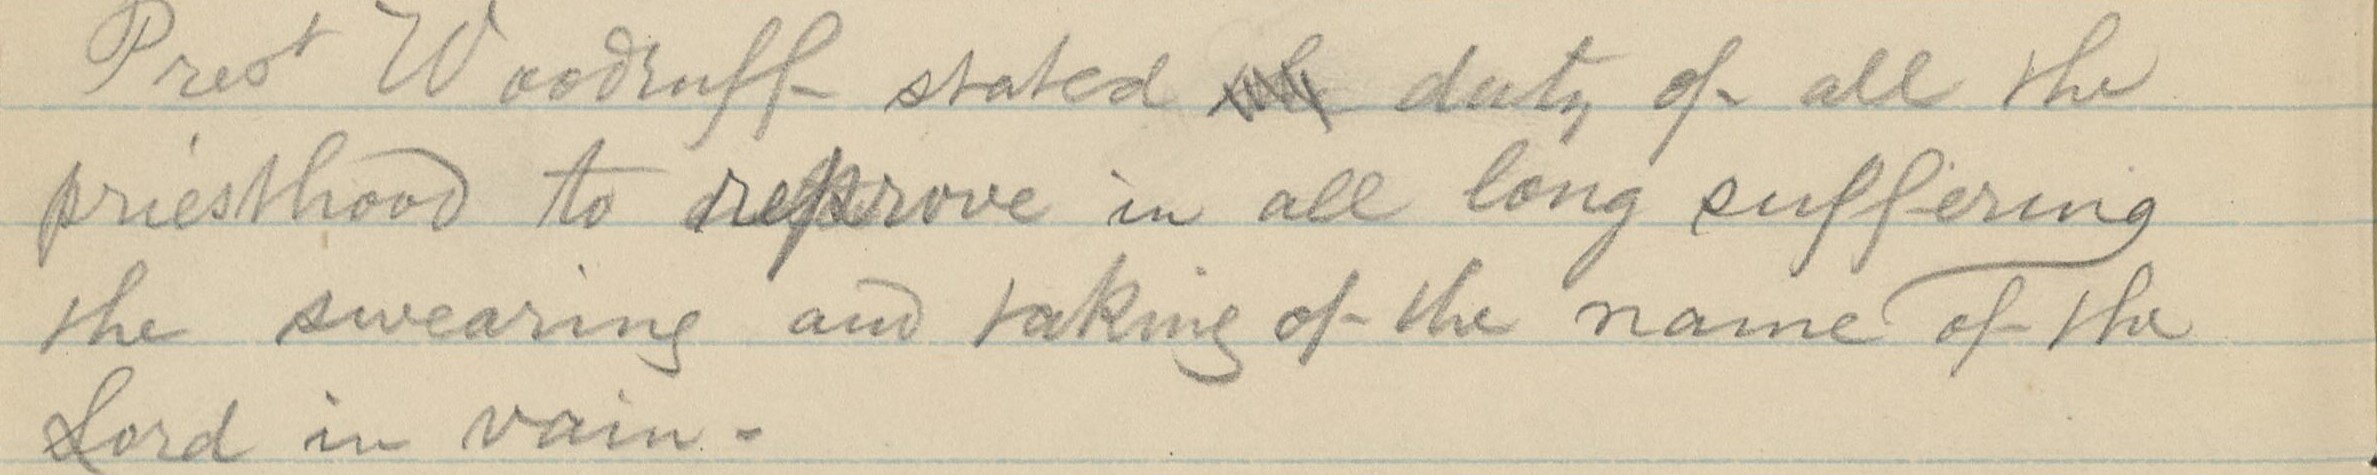 Prest Woodruff stated duty of all the
priesthood to reprove in all long suffering
the swearing and taking of the name of the
Lord in vain -